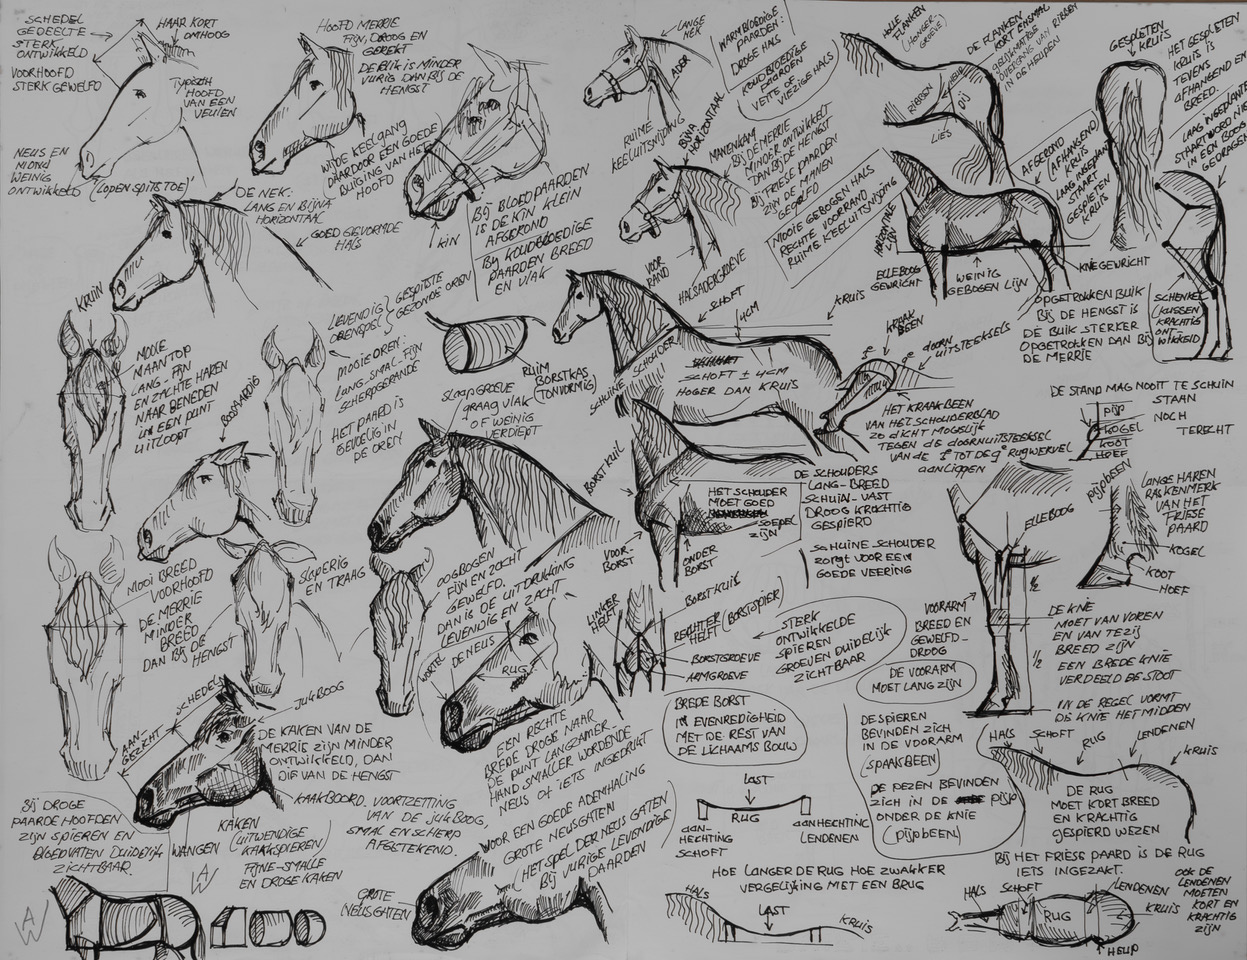 SCHEDEL
GEDEELTE
STERK
ONTWIKKELD
VOORHOOFD
STERK GEWELFD
HAAR KORT
OMHOOG
TYPISCH
HOOFD
VAN EEN
VEULEN
NEUS EN
MOND
WEINIG
ONTWIKKELD ('LOPEN SPITS TOE')
HOOFD MERRIE
FIJN, DROOG EN
GEREKT
DE BLIK IS MINDER
VURIG DAN BIJ DE
HENGST
WIJDE KEELGANG
DAARDOOR EEN GOEDE
BUIGING VAN HET
HOOFD
DE NEK:
LANG EN BIJNA
HORIZONTAAL
GOED GEVORMDE
HALS
KIN
BIJ BLOEDPAARDEN
IS DE KIN KLEIN
AFGEROND
BIJ KOUDBLOEDIGE
PAARDEN BREED
EN VLAK
LANGE
NEK
ADER
RUIME
KEELUITSNIJDING
WARMBLOEDIGE
PAARDEN:
DROGE HALS
KOUDBLOEDIGE
PAARDEN
VETTE OF
VLEZIGE HALS
BIJNA
HORIZONTAAL
MANENKAM
BIJ DE MERRIE
MINDER ONTWIKKELD
DAN BIJ DE HENGST
BIJ FRIESE PAARDEN
ZIJN DE MANEN
GEGOLFD
VOOR
RAND
HALSADERGROEVE
MOOIE GEBOGEN HALS
RECHTE VOORRAND
RUIME KEELUITSNIJDING
HOLLE
FLANKEN
(HONGER-
GROEVE)
DE FLANKEN
KORT EN SMAL
GELIJKMATIGE
OVERGANG VAN RIBBEN
IN DE HEUPEN
RIBBEN
DIJ
LIES
GESPLETEN
KRUIS
HET GESPLETEN
KRUIS IS
TEVENS
AFHANGEND EN
BREED.
LAAG INGEPLANTE
STAART WORD NIET
IN EEN BOOG
GEDRAGEN
AFGEROND
(AFHANGEND)
KRUIS
LAAG INGEPLANTE
STAART
GESPLETEN
KRUIS
HORIZONTALE
LIJN
ELLEBOOG
GEWRICHT
WEINIG
GEBOGEN LIJN
KNIEGEWRICHT
OPGETROKKEN BUIK
BIJ DE HENGST IS
DE BUIK STERKER
OPGETROKKEN DAN BIJ
DE MERRIE
SCHENKEL
(KUSSEN)
KRACHTIG
ONT-
WIKKELD
KRUIN
MOOIE
MAANTOP
LANG-FIJN
EN ZACHTE HAREN
NAAR BENEDEN
IN EEN PUNT
UITLOOPT
LEVENDIG
ORENSPEL
GESPITSTE
GEZONDE OREN
MOOIE OREN:
LANG-SMAL-FIJN
SCHERPGERANDE
HET PAARD IS
GEVOELIG IN
DE OREN
BOOSAARDIG
SLAAPGROEVE
GRAAG VLAK
OF WEINIG
VERDIEPT
RUIM
BORSTKAS
(TONVORMIG)
SCHUINE SCHOUDER
SCHOFT
4CM
KRUIS
SCHOFT ± 4CM
HOGER DAN KRUIS
KRAAK
BEEN
DOORN
UITSTEEKSELS
HET KRAAKBEEN
VAN HET SCHOUDERBLAD
ZO DICHT MOGELIJK
TEGEN DE DOORNUITSTEEKSEL
VAN DE 2e TOT DE 9e RUGWERVEL
AANLIGGEN
DE STAND MAG NOOIT TE SCHUIN
STAAN
NOCH
TE RECHT
PIJP
KOGEL
KOOT
HOEF
BORSTKUIL
HET SCHOUDER
MOET GOED
SOEPEL
ZIJN
VOOR-
BORST
ONDER
BORST
DE SCHOUDERS
LANG-BREED
SCHUIN-VAST
DROOG KRACHTIG
GESPIERD
SCHUINE SCHOUDER
ZORGT VOOR EEN
GOEDE VEERING
ELLEBOOG
PIJPBEEN
LANGE HAREN
RASKENMERK
VAN HET
FRIESE
PAARD
KOGEL
KOOT
HOEF
MOOI BREED
VOORHOOFD
DE MERRIE
MINDER
BREED
DAN BIJ DE
HENGST
SLAPERIG
EN TRAAG
OOGBOGEN
FIJN EN ZACHT
GEWELFD.
DAN IS DE UITDRUKKING
LEVENDIG EN ZACHT
WORTEL
DE NEUS
RUG
LINKER
HELFT
BORSTKUIL
RECHTER
HELFT (BORSTSPIER)
BORSTGROEVE
ARMGROEVE
STERK
ONTWIKKELDE
SPIEREN
GROEVEN DUIDELIJK
ZICHTBAAR
VOORARM
BREED EN
GEWELFD-
DROOG
DE VOORARM
MOET LANG ZIJN
½
½
DE KNIE
MOET VAN VOREN
EN VAN TEZIJ
BREED ZIJN
EEN BREDE KNIE
VERDEELD DE STOOT
IN DE REGEL VORMT
DE KNIE HET MIDDEN
AAN-
GEZICHT
SCHEDEL
JUKBOOG
DE KAKEN VAN DE
MERRIE ZIJN MINDER
ONTWIKKELD, DAN
DIE VAN DE HENGST
KAAKBOORD. VOORTZETTING
VAN DE JUKBOOG,
SMAL EN SCHERP
AFGETEKEND.
EEN RECHTE
BREDE DROGE NAAR
DE PUNT LANGZAMER-
HAND SMALLER WORDENDE
NEUS OF IETS INGEDRUKT
BREDE BORST
IN EVENREDIGHEID
MET DE REST VAN
DE LICHAAMS BOUW
DE SPIEREN
BEVINDEN ZICH
IN DE VOORARM
(SPAAKBEEN)
DE PEZEN BEVINDEN
ZICH IN DE PIJP
ONDER DE KNIE
(PIJPBEEN)
HALS
SCHOFT
RUG
LENDENEN
KRUIS
DE RUG
MOET KORT BREED
EN KRACHTIG
GESPIERD WEZEN
BIJ DROGE
PAARDEHOOFDEN
ZIJN SPIEREN EN
BLOEDVATEN DUIDELIJK
ZICHTBAAR.
WANGEN
KAKEN
(UITWENDIGE
KAAKSPIEREN)
FIJNE-SMALLE
EN DROGE KAKEN
AW
AW
VOOR EEN GOEDE ADEMHALING
GROTE NEUSGATEN
(HET SPEL DER NEUSGATEN
BIJ VURIGE LEVENDIGE
PAARDEN
GROTE
NEUSGATEN
LAST
RUG
AAN-
HECHTING
SCHOFT
AANHECHTING
LENDENEN
HOE LANGER DE RUG HOE ZWAKKER
VERGELIJKING MET EEN BRUG
HALS
LAST
KRUIS
BIJ HET FRIESE PAARD IS DE RUG
IETS INGEZAKT.
HALS
SCHOFT
RUG
LENDENEN
KRUIS
HEUP
OOK DE
LENDENEN
MOETEN
KORT EN
KRACHTIG
ZIJN